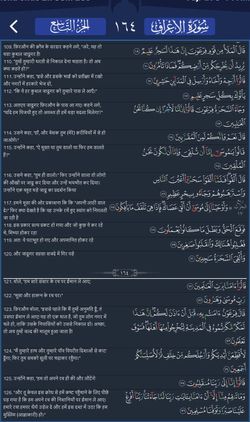 سُورَةُ الأَعْرَافِ
١٦٤
الجُزْءُ التَّاسِعُ
109. फ़िरऔन की क़ौम के सरदार कहने लगे, "अरे, यह तो
बड़ा कुशल जादूगर है!
110. "तुम्हें तुम्हारी धरती से निकाल देना चाहता है। तो अब
क्या कहते हो?"
111. उन्होंने कहा, "इसे और इसके भाई को प्रतीक्षा में रखो
और नगरों में हरकारे भेज दो,
112. "कि वे हर कुशल जादूगर को तुम्हारे पास ले आएँ।"
113. अतएव जादूगर फ़िरऔन के पास आ गए। कहने लगे,
"यदि हम विजयी हुए तो अवश्य ही हमें बड़ा बदला मिलेगा?"
114. उसने कहा, "हाँ, और बेशक तुम (मेरे) क़रीबियों में से हो
जाओगे।"
115. उन्होंने कहा, "ऐ मूसा! या तुम डालो या फिर हम डालते
हैं?"
116. उसने कहा, "तुम ही डालो।" फिर उन्होंने डाला तो लोगों
की आँखों पर जादू कर दिया और उन्हें भयभीत कर दिया।
उन्होंने एक बहुत बड़े जादू का प्रदर्शन किया
117. हमने मूसा की ओर प्रकाशना की कि "अपनी लाठी डाल
दे।" फिर क्या देखते हैं कि वह उनके रचे हुए स्वांग को निगलती
जा रही है
118. इस प्रकार सत्य प्रकट हो गया और जो कुछ वे कर रहे
थे, मिथ्या होकर रहा
119. अतः वे पराभूत हो गए और अपमानित होकर रहे
120. और जादूगर सहसा सजदे में गिर पड़े
قَالَ الْمَلَأُ مِن قَوْمِ فِرْعَوْنَ إِنَّ هَٰذَا لَسَاحِرٌ عَلِيمٌ
يُرِيدُ أَن يُخْرِجَكُم مِّنْ أَرْضِكُمْ فَمَاذَا تَأْمُرُونَ
قَالُوا أَرْجِهْ وَأَخَاهُ وَأَرْسِلْ فِي الْمَدَائِنِ حَاشِرِينَ
يَأْتُوكَ بِكُلِّ سَاحِرٍ عَلِيمٍ
وَجَاءَ السَّحَرَةُ فِرْعَوْنَ قَالُوا إِنَّ لَنَا لَأَجْرًا إِن كُنَّا نَحْنُ
الْغَالِبِينَ
قَالَ نَعَمْ وَإِنَّكُمْ لَمِنَ الْمُقَرَّبِينَ
قَالُوا يَا مُوسَىٰ إِمَّا أَن تُلْقِيَ وَإِمَّا أَن نَّكُونَ نَحْنُ
الْمُلْقِينَ
قَالَ أَلْقُوا فَلَمَّا أَلْقَوْا سَحَرُوا أَعْيُنَ النَّاسِ
وَاسْتَرْهَبُوهُمْ وَجَاءُوا بِسِحْرٍ عَظِيمٍ
وَأَوْحَيْنَا إِلَىٰ مُوسَىٰ أَنْ أَلْقِ عَصَاكَ فَإِذَا هِيَ تَلْقَفُ مَا يَأْفِكُونَ
فَوَقَعَ الْحَقُّ وَبَطَلَ مَا كَانُوا يَعْمَلُونَ
فَغُلِبُوا هُنَالِكَ وَانقَلَبُوا صَاغِرِينَ
وَأُلْقِيَ السَّحَرَةُ سَاجِدِينَ
١٦٤
121. बोले, "हम सारे संसार के रब पर ईमान ले आए;
122. "मूसा और हारून के रब पर।"
123. फ़िरऔन बोला, "इससे पहले कि मैं तुम्हें अनुमति दूँ, तुम
उसपर ईमान ले आए! यह तो एक चाल है, जो तुम लोग नगर में
चले हो, ताकि उसके निवासियों को उससे निकाल दो। अच्छा,
तो अब तुम्हें जल्द ही मालूम हुआ जाता है!
124. "मैं तुम्हारे हाथ और तुम्हारे पाँव विपरीत दिशाओं से काट
दूँगा; फिर तुम सबको सूली पर चढ़ाकर रहूँगा।"
125. उन्होंने कहा, "हम तो अपने रब ही की ओर लौटेंगे
126. "और तू केवल इस क्रोध से हमें कष्ट पहुँचाने के लिए पीछे
पड़ गया है कि हम अपने रब की निशानियों पर ईमान ले आए।
हमारे रब! हमपर धैर्य उड़ेल दे और हमें इस दशा में उठा कि हम
मुस्लिम (आज्ञाकारी) हों।"
قَالُوا آمَنَّا بِرَبِّ الْعَالَمِينَ
رَبِّ مُوسَىٰ وَهَارُونَ
قَالَ فِرْعَوْنُ آمَنتُم بِهِ قَبْلَ أَنْ آذَنَ لَكُمْ إِنَّ هَٰذَا
لَمَكْرٌ مَّكَرْتُمُوهُ فِي الْمَدِينَةِ لِتُخْرِجُوا مِنْهَا أَهْلَهَا فَسَوْفَ
تَعْلَمُونَ
لَأُقَطِّعَنَّ أَيْدِيَكُمْ وَأَرْجُلَكُم مِّنْ خِلَافٍ ثُمَّ لَأُصَلِّبَنَّكُمْ
أَجْمَعِينَ
قَالُوا إِنَّا إِلَىٰ رَبِّنَا مُنقَلِبُونَ
وَمَا تَنقِمُ مِنَّا إِلَّا أَنْ آمَنَّا بِآيَاتِ رَبِّنَا لَمَّا جَاءَتْنَا رَبَّنَا أَفْرِغْ
عَلَيْنَا صَبْرًا وَتَوَفَّنَا مُسْلِمِينَ